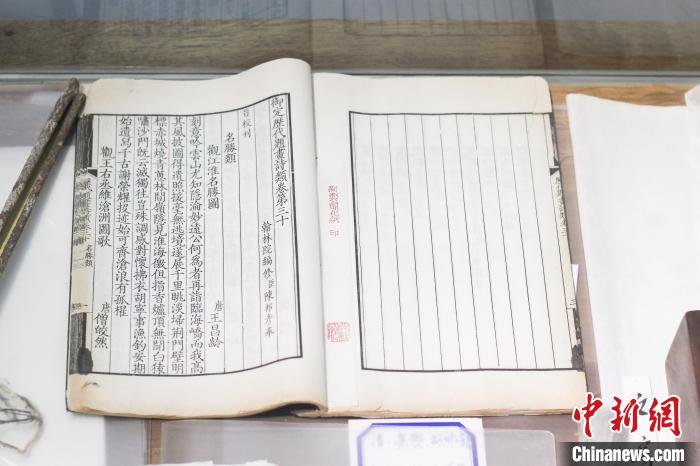 御定歷代題畫詩類卷第三十
翰林院編修臣陳邦彥奉
旨校刊
名勝類
觀江淮名勝圖
唐王昌齡
刻意吟雲山尤知隱淪妙遠公何為者再詣臨海嶠而我高
其風披圖得遺照援毫無逃境遂展千里眺淡掃荊門壁明
標赤城燒青蔥林間嶺隱見淮海徼但指香爐頂無聞白猨
嘯沙門既云滅獨往豈殊調感對懷拂衣胡寧事漁釣安期
始遺舄千古謝榮耀投迹庶可齊滄浪有孤櫂
觀王右丞維滄洲圖歌
唐僧皎然
名勝類
印
中新网
Chinanews.com